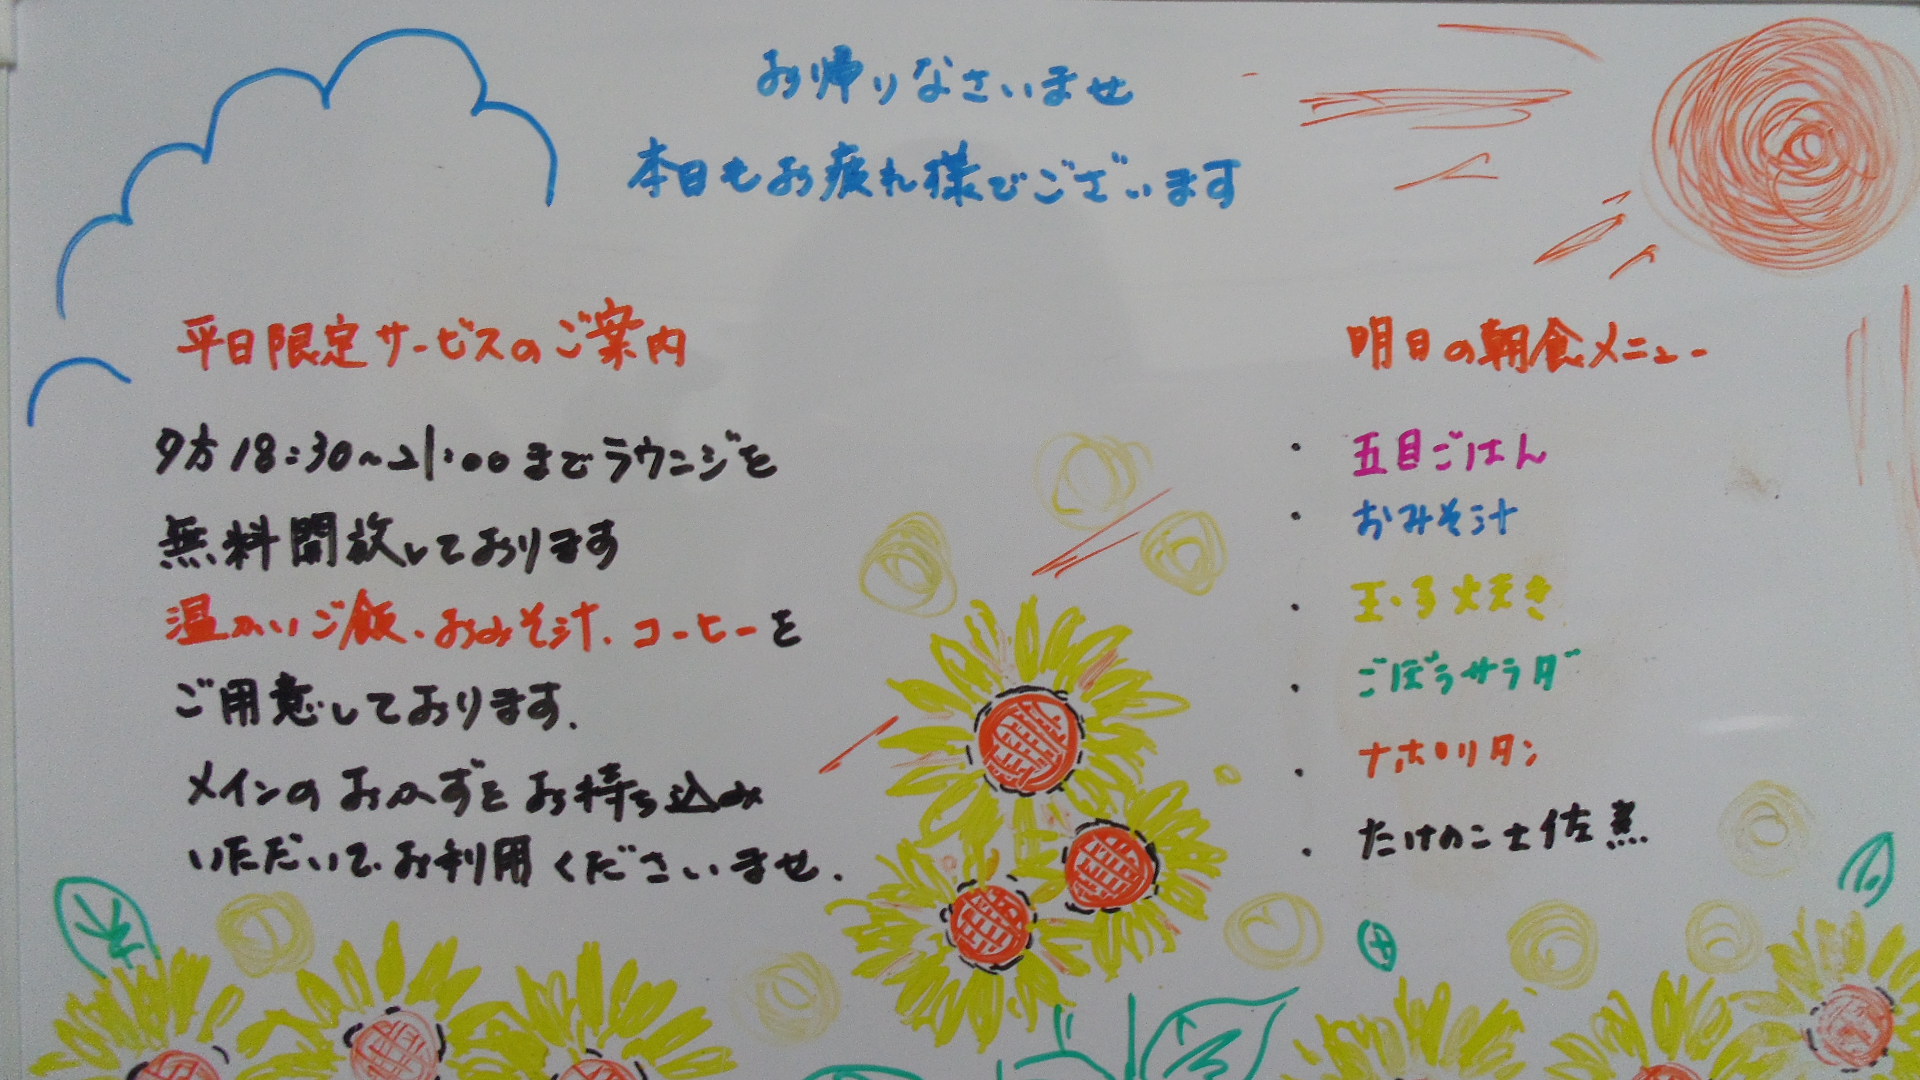 お帰りなさいませ
本日もお疲れ様でございます
平日限定サービスのご案内
夕方18:30~21:00までラウンジを
無料開放しております
温かいご飯、おみそ汁、コーヒーを
ご用意しております.
メインのおかずをお持ち込み
いただいて、お利用くださいませ.
明日の朝食メニュー
・五目ごはん
・おみそ汁
・玉子焼き
・ごぼうサラダ
・ナポリタン
・たけのこ土佐煮